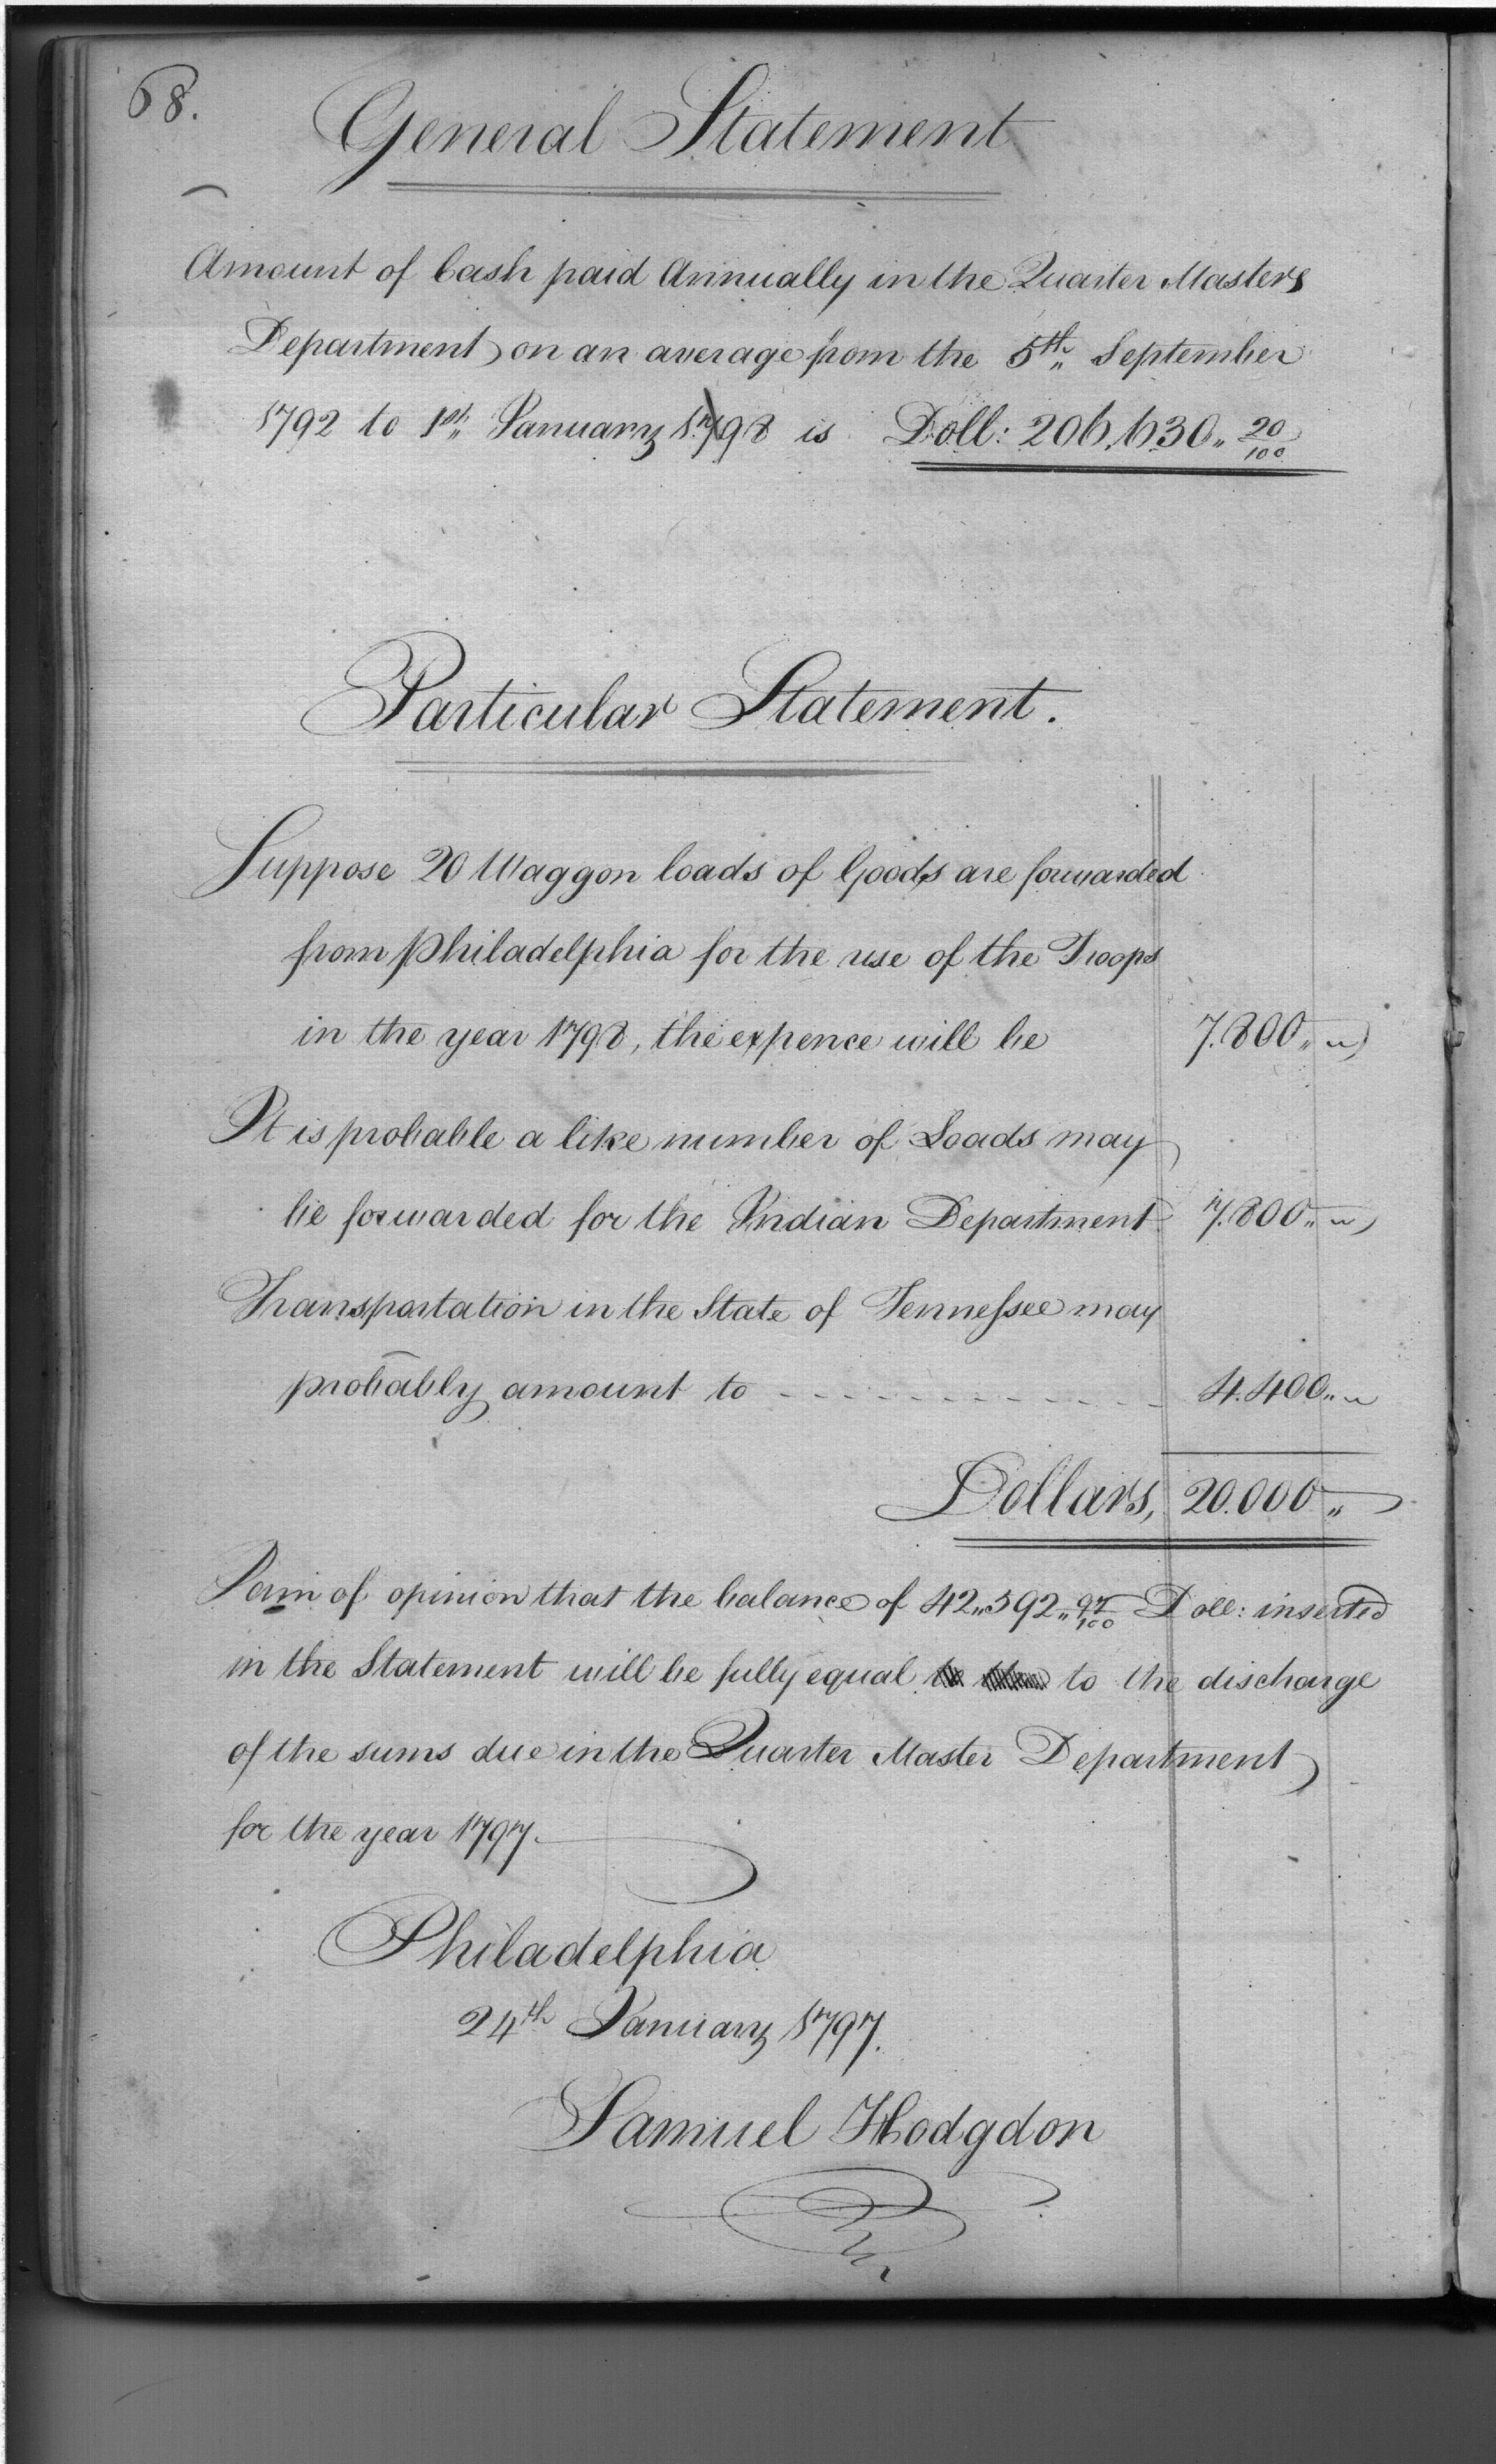 68.
General Statement
Amount of Cash paid Annually in the Quarter Masters
Department on an average from the 5th September
1792 to 1st January 1798 is Doll: 206,630,, 20/100
Particular Statement.
Suppose 20 Waggon loads of Goods are forwarded
from Philadelphia for the use of the Troops
in the year 1798, the expence will be 7.800,,
It is probable a like number of Loads may
be forwarded for the Indian Department 7.800,,
Transportation in the State of Tennessee may
probably amount to - - - - - - - - - - - - 4.400,,
Dollars, 20.000,,
I am of opinion that the balance of 42,,592,, 97/100 Doll: inserted
in the Statement will be fully equal to the discharge
of the sums due in the Quarter Master Department
for the year 1797.
Philadelphia
24th January 1797.
Samuel Hodgdon